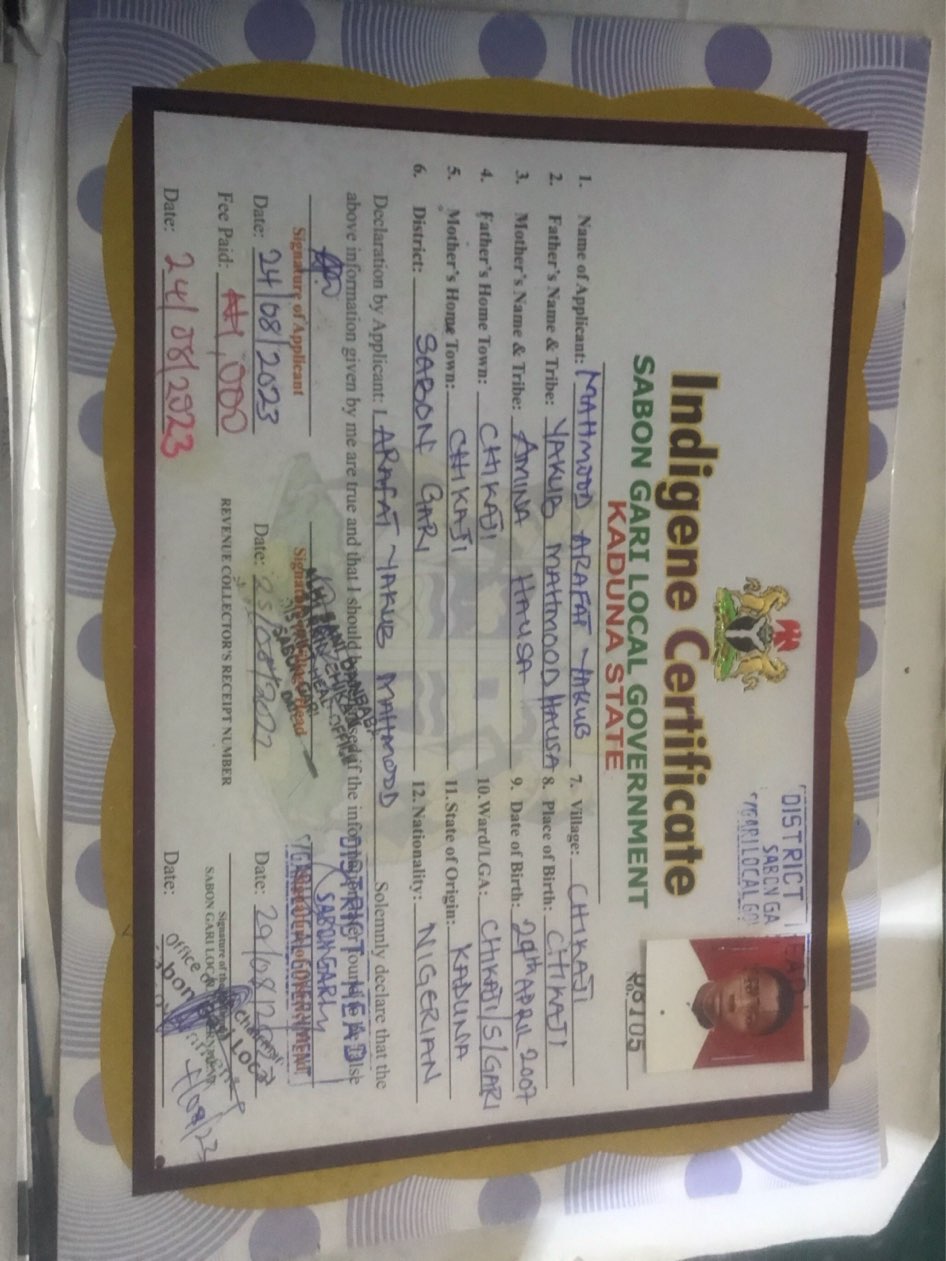 DISTRICT HEAD
SABON GA
GARI LOCAL GO
Indigene Certificate
SABON GARI LOCAL GOVERNMENT
KADUNA STATE
1. Name of Applicant: MAHMOOD ARAFAT YAKUB
2. Father's Name & Tribe: YAKUB MAHMOOD HAUSA
3. Mother's Name & Tribe: AMINA HAUSA
4. Father's Home Town: CHIKAJI
5. Mother's Home Town: CHIKAJI
6. District: SABON GARI
7. Village: CHIKAJI
8. Place of Birth: CHIKAJI
9. Date of Birth: 29th APRIL 2007
10. Ward/LGA: CHIKAJI/S/GARI
11. State of Origin: KADUNA
12. Nationality: NIGERIAN
Declaration by Applicant: I, ARAFAT YAKUB MAHMOOD Solemnly declare that the
above information given by me are true and that I should be if the
DISTRICT HEAD
SABON GARI
GARI LOCAL GOVERNMENT
Signature of Applicant
Date: 24/08/2023
Date:
Date: 29/08/2
Fee Paid: ₦1,000
REVENUE COLLECTOR'S RECEIPT NUMBER
Signature of the
SABON GARI LOCAL
Date: 24/08/2023
Date:
Office